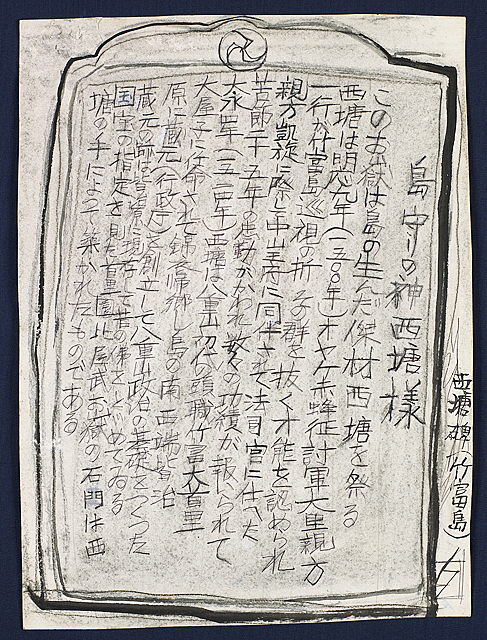 島守りの神西塘様
このお嶽は島の生んだ傑材西塘を祭る
西塘は明応九年(一五〇〇年)オヤケ赤蜂征討軍大里親方
一行が竹富島巡視の折その群を抜く才能を認められ
親方凱旋に際し中山王府に同伴されて法司官に仕へた
苦節二十五年の生動がかわれ数々の功績が報られて
大永四年(一五二四年)西塘は八重山初代の頭職竹富大首里
大屋子に任命されて錦衣帰郷し島の南西端皆治
原に蔵元(行政庁)を創立して八重山政治の基礎をつくった
蔵元の跡は皆治原に現存して昔の佛をとどめてゐる
国宝の指定を見た首里園比屋武お嶽の石門は西
塘の手によって築かれたものである
西塘碑(竹富島)